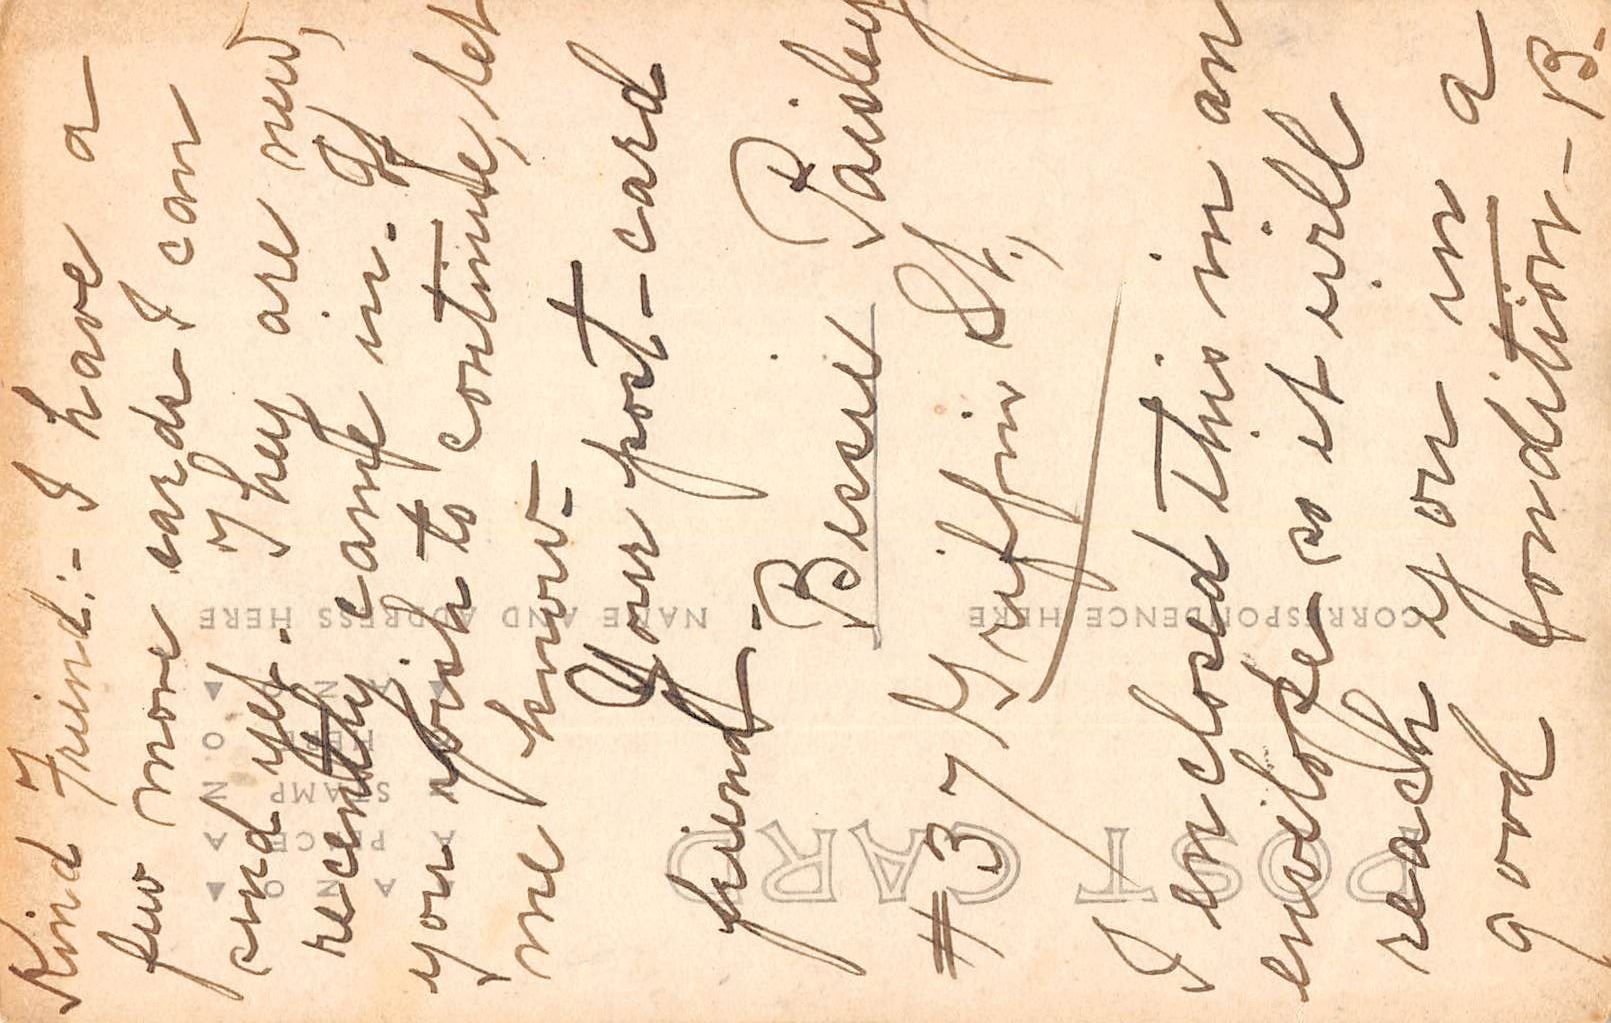 Kind Friend:- I have a
few more cards I can
send yet. They are new,
recently came in. If
you wish to continue, let
me know.-
Your post-card
friend-
Bessie Paisley
#37 Griffin St.,
I enclosed this in an
envelope so it will
reach you in a
good condition- B.
POST CARD
CORRESPONDENCE HERE
NAME AND ADDRESS HERE
PLACE
STAMP
HERE